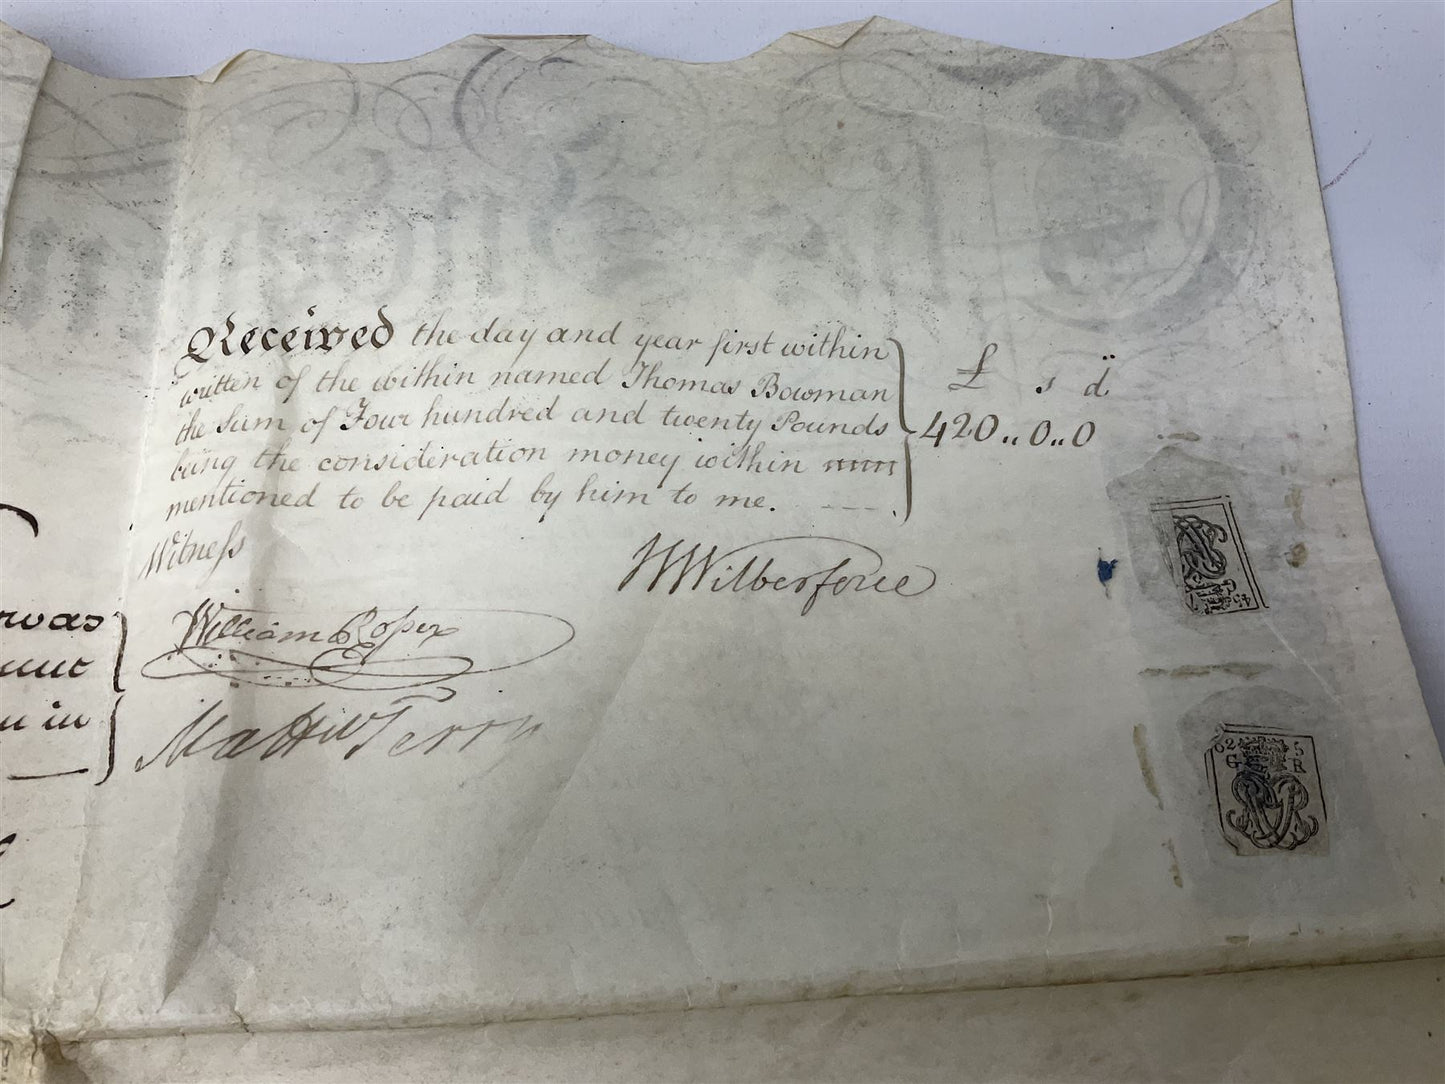 Received the day and year first within
written of the within named Thomas Bowman
the Sum of Four hundred and twenty Pounds
being the consideration money within
mentioned to be paid by him to me.
£ s d
420..0..0
Witness
WWilberforce
William Roper
Matthw Terry
was
in
62 5
G R